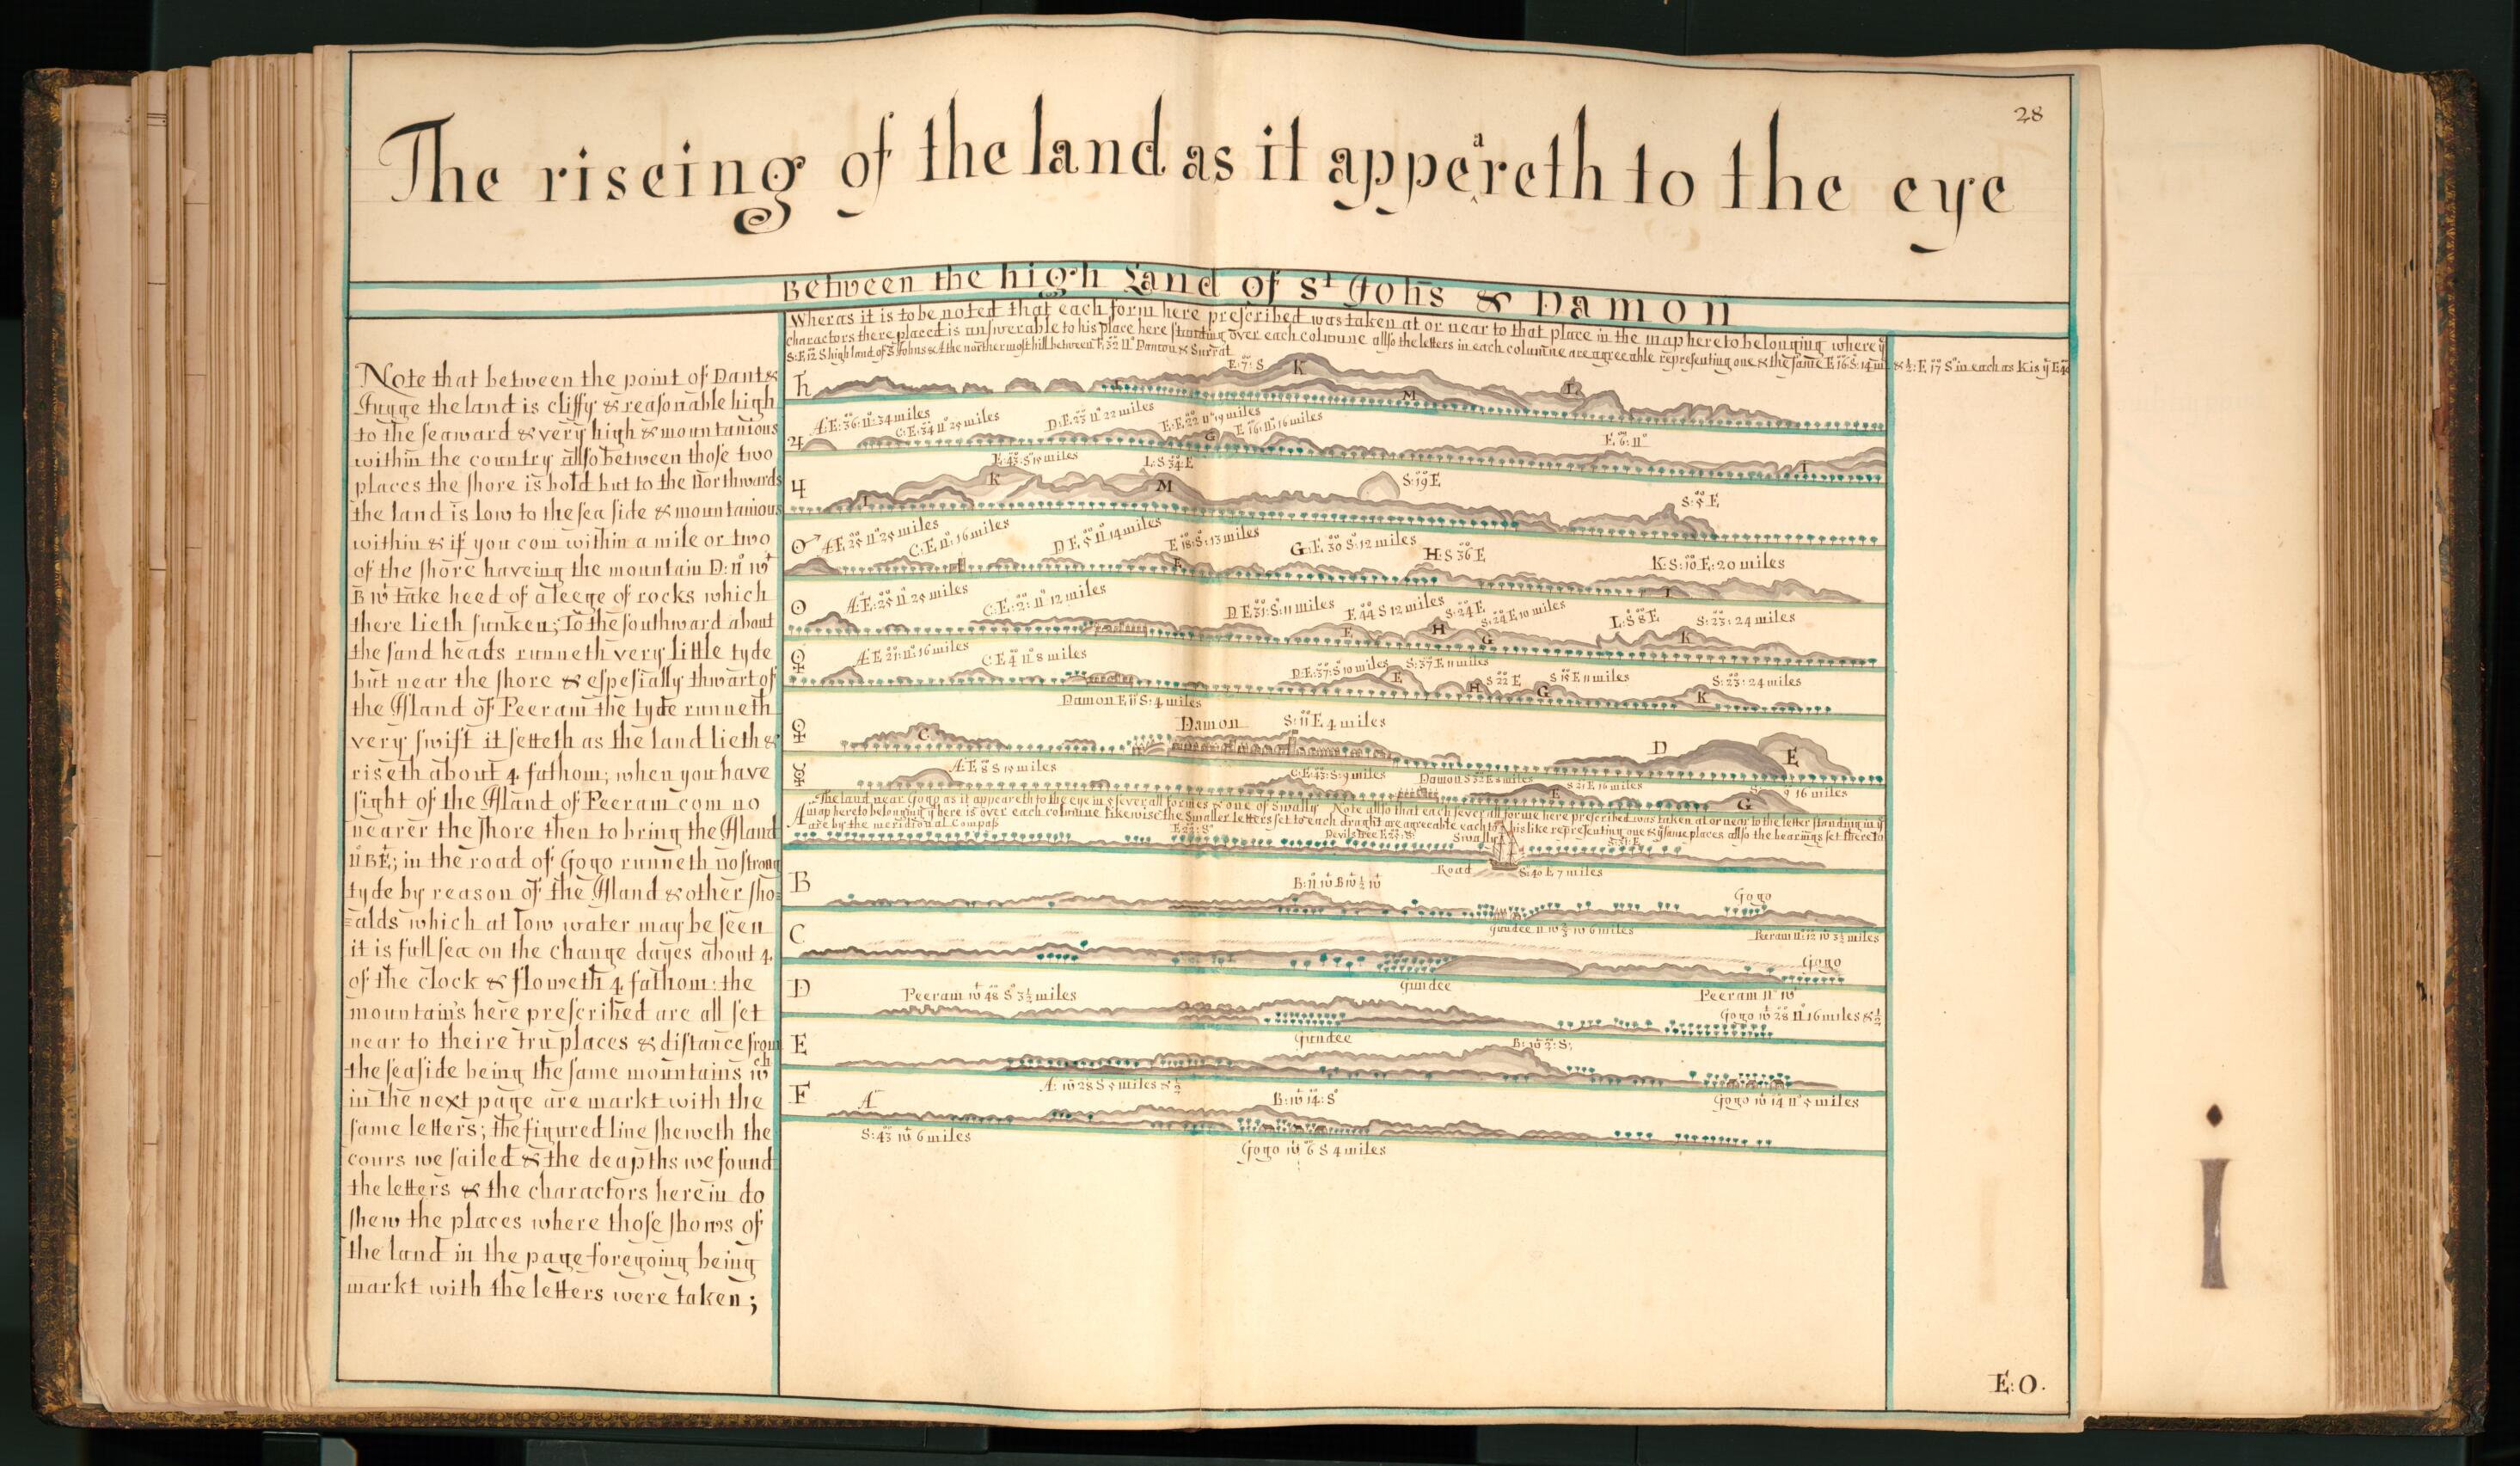 28
The riseing of the land as it appeareth to the eye
Between the high Land of St Johs & Damon
Note that between the point of Dant &
Jugge the land is cliffy & reasonable high
to the seaward & very high & mountanious
within the country allso between those two
places the shore is bold but to the Northwards
the land is low to the sea side & mountainious
within & if you com within a mile or two
of the shore haveing the mountain D: N W
B W take heed of a leege of rocks which
there lieth sunken; To the southward about
the sand heads runneth very little tyde
but near the shore & espesially thwart of
the Island of Peeram the tyde runneth
very swift it setteth as the land lieth &
riseth about 4 fathom; when you have
sight of the Island of Peeram com no
nearer the shore then to bring the Island
NBE; in the road of Gogo runneth no strong
tyde by reason of the Island & other sho=
=alds which at low water may be seen
it is full sea on the change dayes about 4
of the clock & floweth 4 fathom: the
mountains here prescribed are all set
near to theire tru places & distance from
the seaside being the same mountains wch
in the next page are markt with the
same letters; the figured line sheweth the
cours we sailed & the deapths we found
the letters & the charactors herein do
shew the places where those shows of
the land in the page foregoing being
markt with the letters were taken;
Wheras it is to be noted that each form here prescribed was taken at or near to that place in the map hereto belonging where ye
charactors there placed is answerable to his place here standing over each columne allso the letters in each columne are agreeable representing one & the same
S: E 12 S high land of St Johns & 4 the northermost hill between Damon & Surrat
♄ E: 7: S K M L
♃ Æ E: 36: N: 34 miles C: E: 34 N 29 miles D: E: 23 N 22 miles E: E: 22 N 19 miles G E 16: N: 16 miles E 6: N I
♃ I K E: 43: S 15 miles L: S 34: E M S: 19 E S: 5 E
♂ Æ E 25 N 25 miles C: E N: 16 miles D E: 5 N 14 miles E 18: S: 13 miles E G: E 30 S: 12 miles H: S 36 E K: S: 10 E: 20 miles I
☉ Æ E: 25 N 25 miles C: E: 2: N 12 miles D E 31: S: 11 miles E 44 S 12 miles E S: 24 E H S: 24 E 10 miles G L: S 8 E S: 23: 24 miles K
♀ Æ E 21: N: 16 miles C: E 4 N 8 miles D: E: 37: S 10 miles E S: 37 E 11 miles H S 22 E G S 15 E 11 miles S: 23: 24 miles K
Damon E 11 S: 4 miles
♀ C Damon S: 11 E 4 miles D E
☿ Æ E 8 S 15 miles C: E 43: S: 9 miles Damon S 32 E 8 miles E S 21 E 16 miles G 16 miles
The land near Gogo as it appeareth to the eye in severall formes & one of Swally Note allso that each severall forme here prescribed was taken at or near to the letter standing in ye
map hereto belonging & here is over each columne likewise the smaller letters set to each draught are agreeable each to his like representing one & ye same places allso the bearings set thereto
are by the meridional compass
A Devils tree E 23: S: Swally S: 31: E
Road S: 40 E 7 miles
B B: N W B W ½ W Gogo
Gundee N W 6 miles Peeram N: 12 W 3½ miles
C Gogo
Gundee Peeram N W
D Peeram W 48 S 3½ miles Gogo W 28 N 16 miles & ½
Gundee
E B: W 2: S:
A: W 28 S 5 miles & ½ Gogo W 14 N 5 miles
F A B: W 14: S
S: 43 W 6 miles
Gogo W 6 S 4 miles
E: O.
i